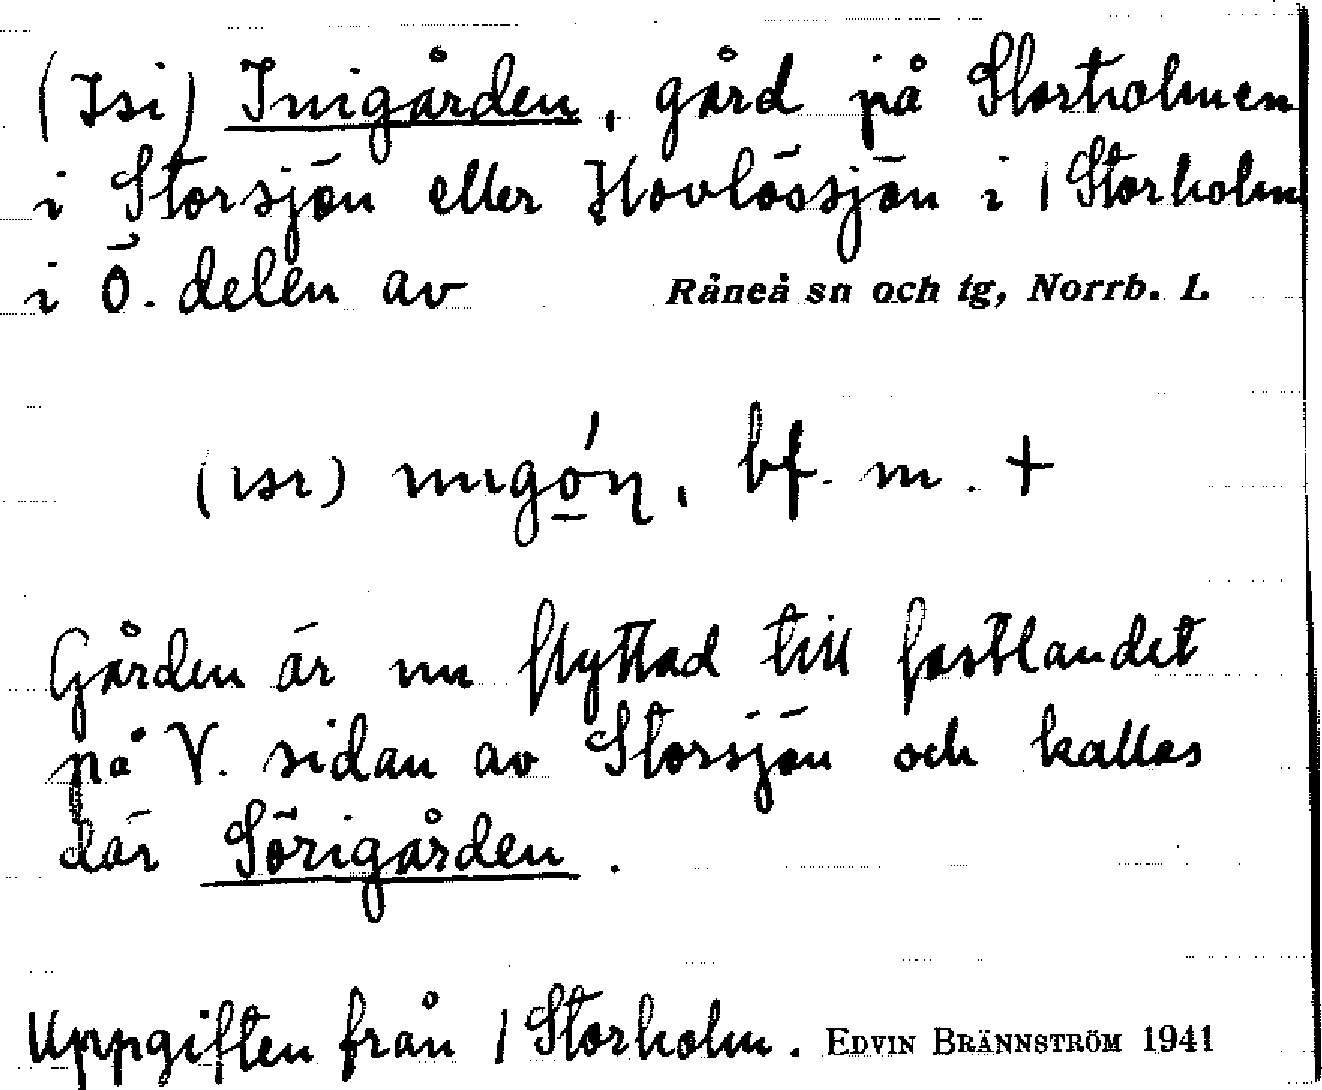 (Isi) Inigården, gård på Storholmen
i Storsjön eller Hovlössjön i / Storholm
i Ö. delen av Råneå sn och tg, Norrb. L
(ısı) ınıgó̱ṇ, bf. m. +
Gården är nu flyttad till fastlandet
på V. sidan av Storsjön och kallas
där Sörigården.
Uppgiften från / Storholm. EDVIN BRÄNNSTRÖM 1941